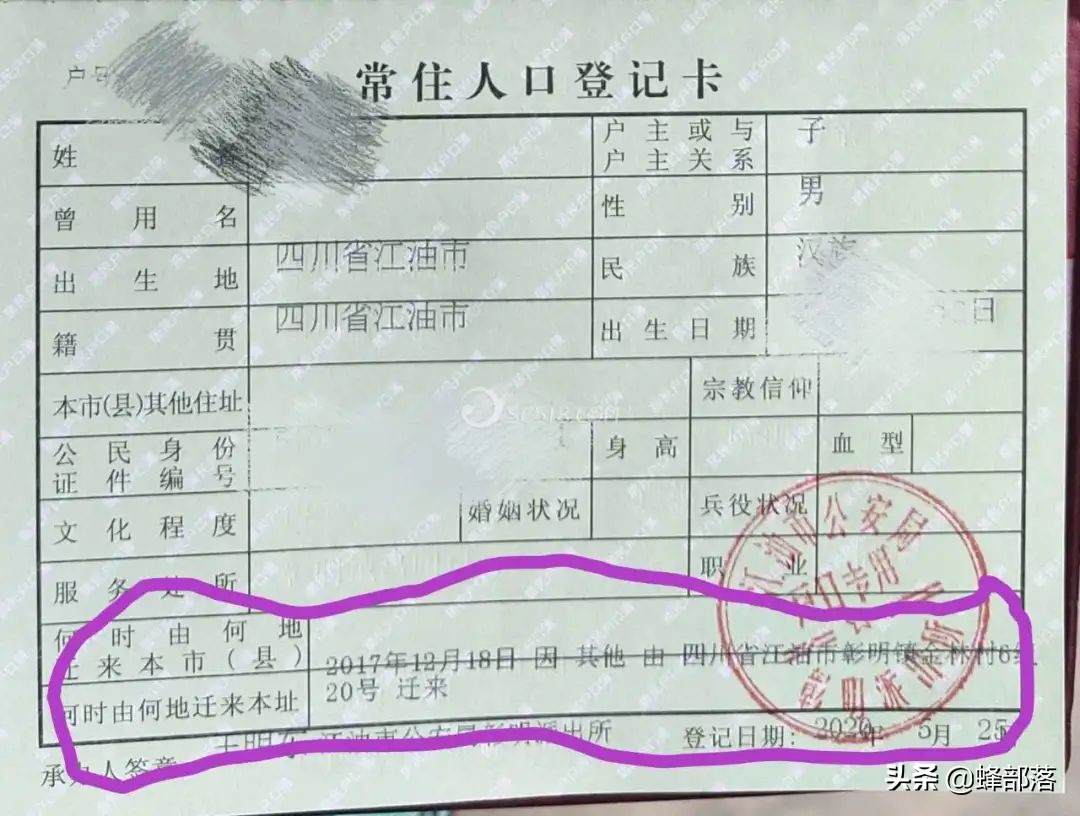 户号
常住人口登记卡
姓
户主或与
户主关系
子
曾用名
性别
男
出生地
四川省江油市
民族
汉族
籍贯
四川省江油市
出生日期
日
本市(县)其他住址
宗教信仰
公民身份
证件编号
身高
血型
文化程度
婚姻状况
兵役状况
服务处所
职业
何时由何地
迁来本市(县)
2017年12月18日 因 其他 由 四川省江油市彰明镇金林村6组
20号 迁来
何时由何地迁来本址
江油市公安局彰明派出所
承办人签章
登记日期:
2020年 5月 25
江油市公安局
户口专用
彰明派出所
sc518.com
头条 @蜂部落